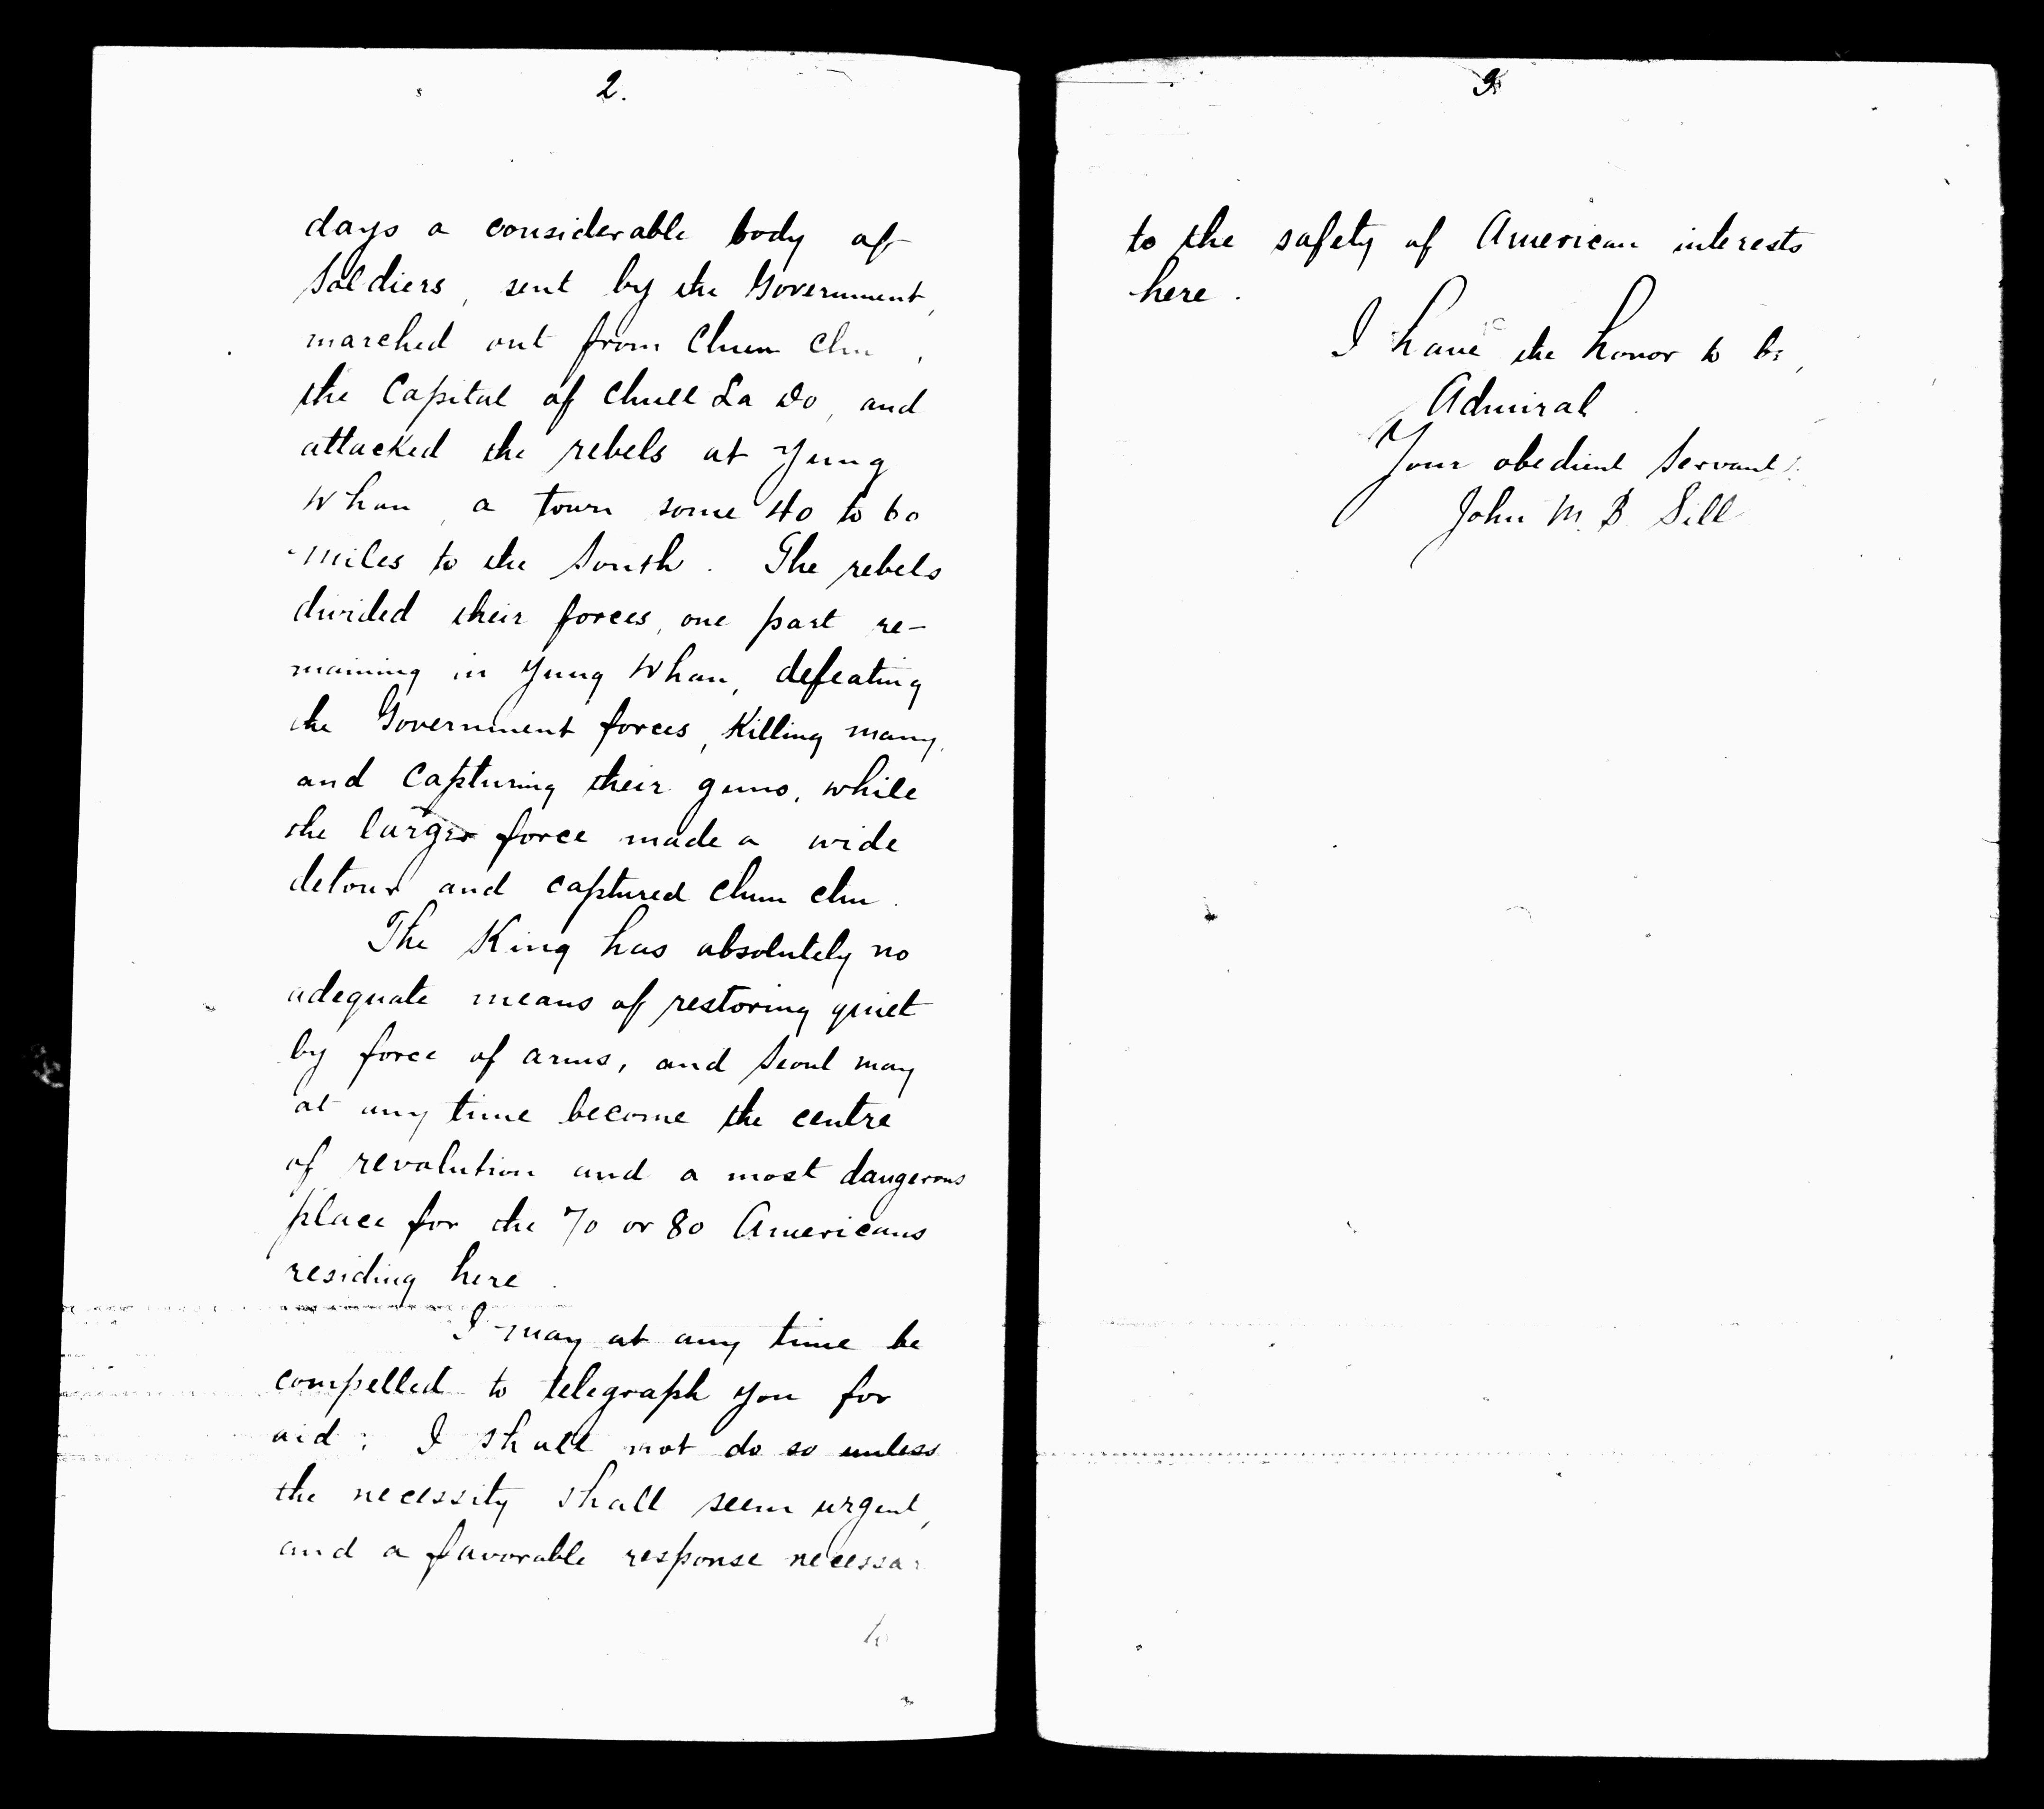 2.
days a considerable body of
soldiers, sent by the Government,
marched out from Chun Chu,
the Capital of Chull La Do, and
attacked the rebels at Yung
Whan, a town some 40 to 60
miles to the South. The rebels
divided their forces, one part re-
maining in Yung Whan, defeating
the Government forces, killing many,
and capturing their guns, while
the larger force made a wide
detour and captured Chun Chu.
The King has absolutely no
adequate means of restoring quiet
by force of arms, and Seoul may
at any time become the centre
of revolution and a most dangerous
place for the 70 or 80 Americans
residing here.
I may at any time be
compelled to telegraph you for
aid; I shall not do so unless
the necessity shall seem urgent,
and a favorable response necessar
to
3
to the safety of American interests
here.
I have the honor to be,
Admiral
Your obedient servant.
John M. B. Sill